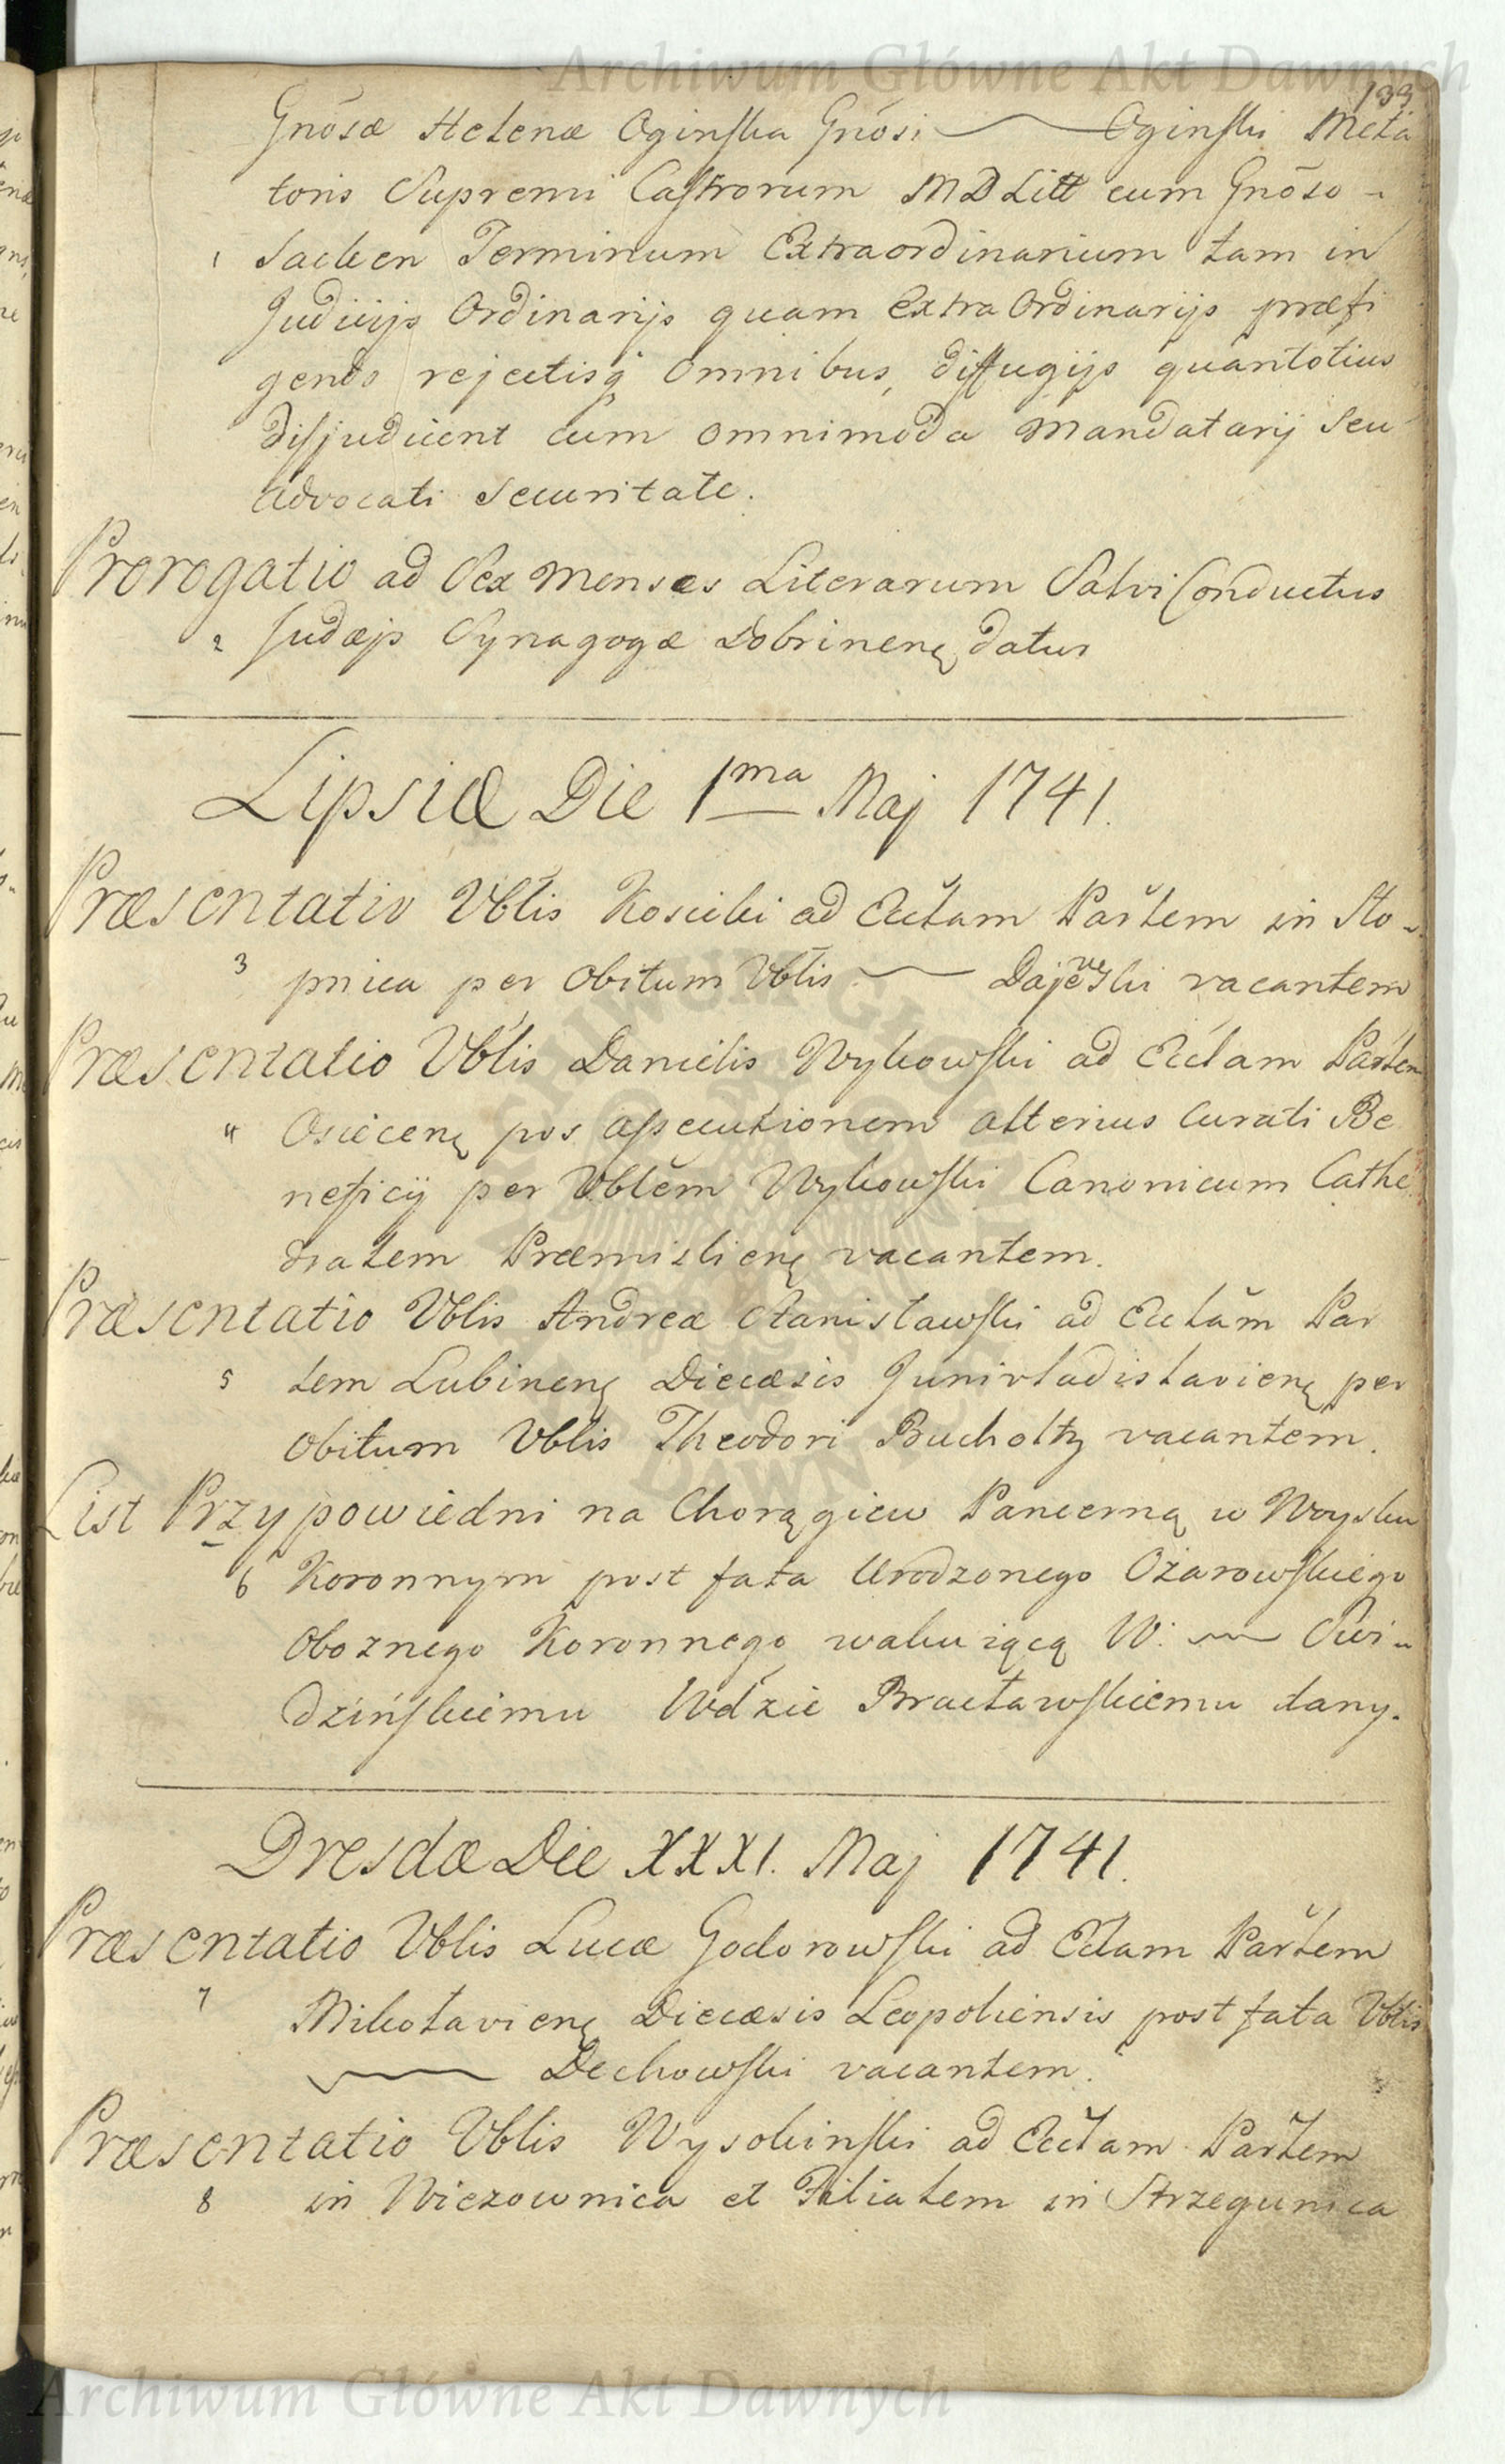 Archiwum Główne Akt Dawnych
133
Gnõsæ Helenæ Oginska Gnõsi Oginski Meta
toris Supremi Castrorum M D Litt cum Gnõso -
1 Sacken Terminum Extraordinarium tam in
Judicijs Ordinarijs quam extra Ordinarijs præfi
gendo rejectisq omnibus, diffugijs quantotius
disjudicent cum omnimoda Mandatarij seu
Advocati Securitate.
Prorogatio ad Sex Menses Literarum Salvi Conductus
2 Judæjs Synagogæ Dobrinenę datur
Lipsiæ Die 1ma Maj 1741.
Præsentatio Vblis Kosicki ad Ecclam Parlem in Sto-
3 pnica per obitum Vblis Dajewski vacantem
Præsentatio Vblis Danielis Wykowski ad Ecclam Parlem
4 Osiecenę pos assecutionem alterius Curati Be
neficij per Vblem Wykowski Canonicum Cathe
dralem Præmislienę vacantem.
Præsentatio Vblis Andreæ Stanisławski ad Ecclam Par
5 lem Lubinenę Diecæsis Junivladislavienę per
obitum Vblis Theodori Bucholtz vacantem.
List Przypowiedni na Chorągiew Pancerną w Woysku
6 Koronnym post fata Urodzonego Ożarowskiego
Oboznego Koronnego wakuiącą W: Swi-
dzińskiemu Wdzie Bracławskiemu dany.
Dresdæ Die XXXI. Maj 1741.
Præsentatio Vblis Lucæ Godorowski ad Ecclam Parlem
7 Mikołavienę Diecæsis Leopoliensis post fata Vblis
Dechowski vacantem.
Præsentatio Vblis Wysokinski ad Ecclam Parlem
8 in Wiezownica et Filialem in Strzegunica
Archiwum Główne Akt Dawnych